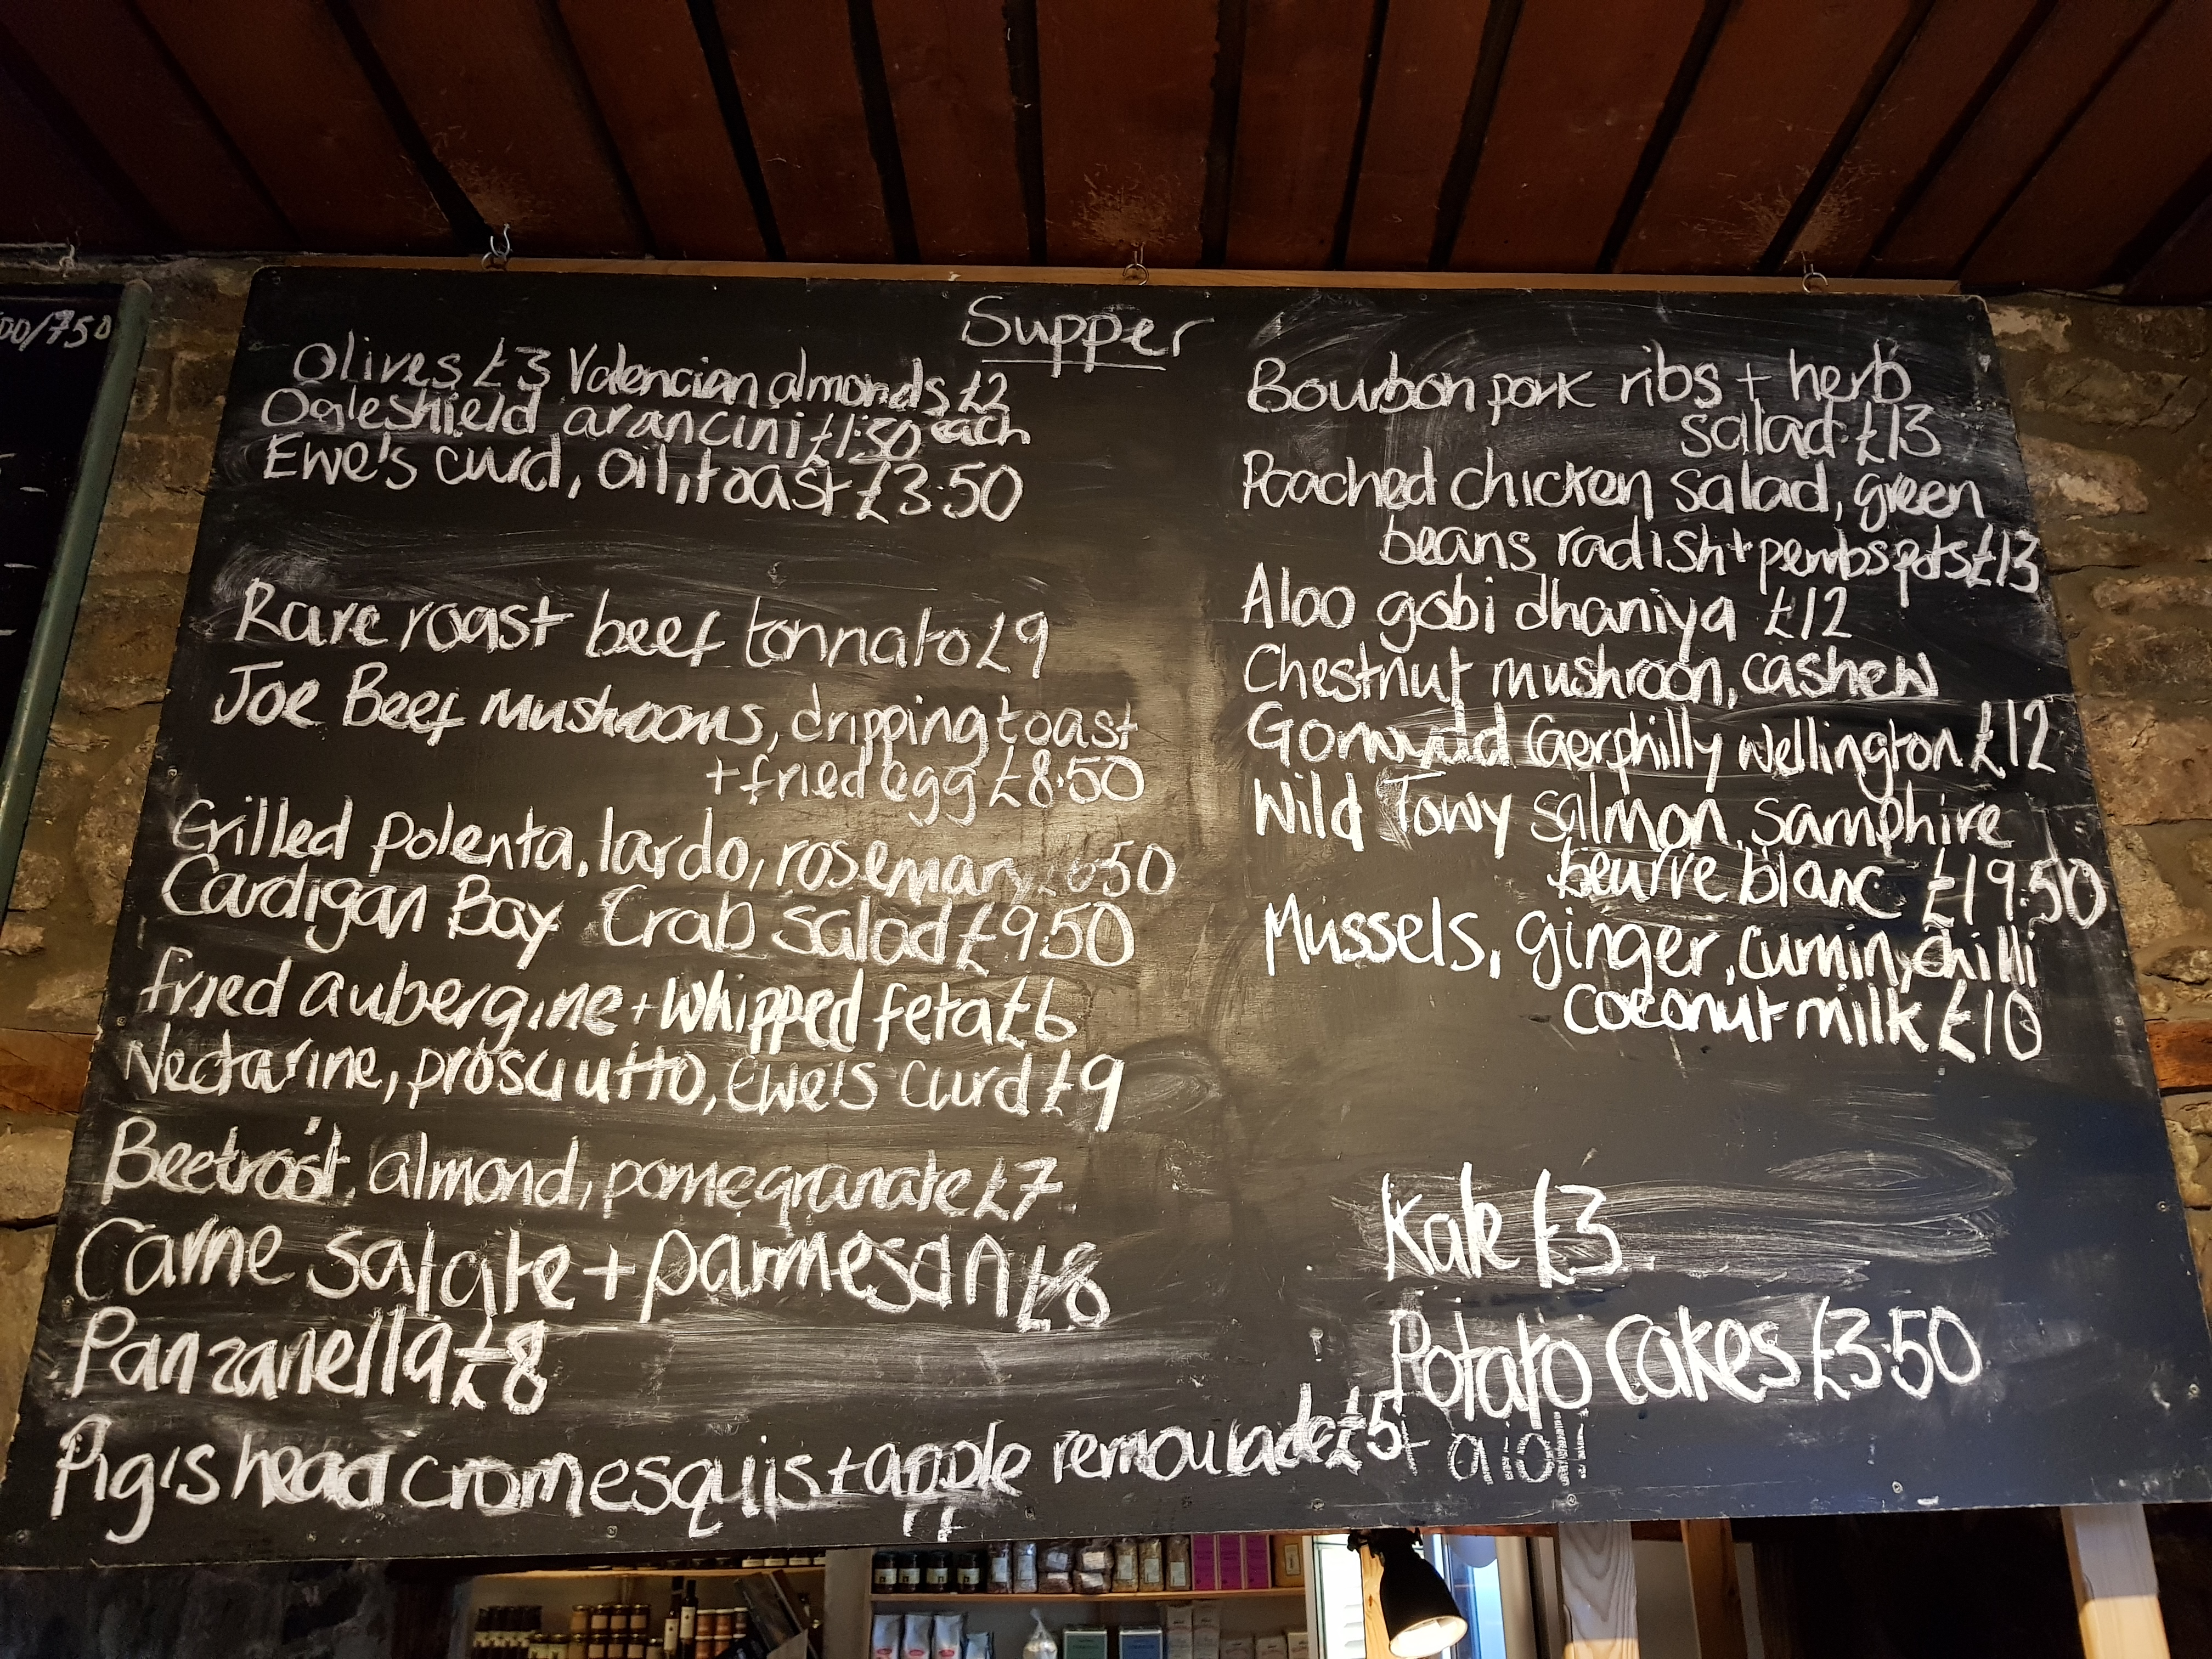 00/750
Supper
Olives £3 Valencian almonds £2
Ogleshield arancini £1.50 each
Ewe's curd, oil, toast £3.50
Rare roast beef tonnato £9
Joe Beef mushrooms, dripping toast
+ fried egg £8.50
Grilled polenta, lardo, rosemary £650
Cardigan Bay Crab salad £9.50
fried aubergine + whipped feta £6
Nectarine, prosciutto, Ewe's curd £9
Beetroot, almond, pomegranate £7
Carne salata + parmesan £8
Panzanella £8
Pig's head cromesquis + apple remoulade £5
Bourbon pork ribs + herb
salad £13
Poached chicken salad, green
beans radish + pembs pots £13
Aloo gobi dhaniya £12
Chestnut mushroom, cashew
Gorwydd Caerphilly wellington £12
Wild Towy salmon, samphire
beurre blanc £19.50
Mussels, ginger, cumin, chilli
coconut milk £10
Kale £3
Potato cakes £3.50
+ aioli